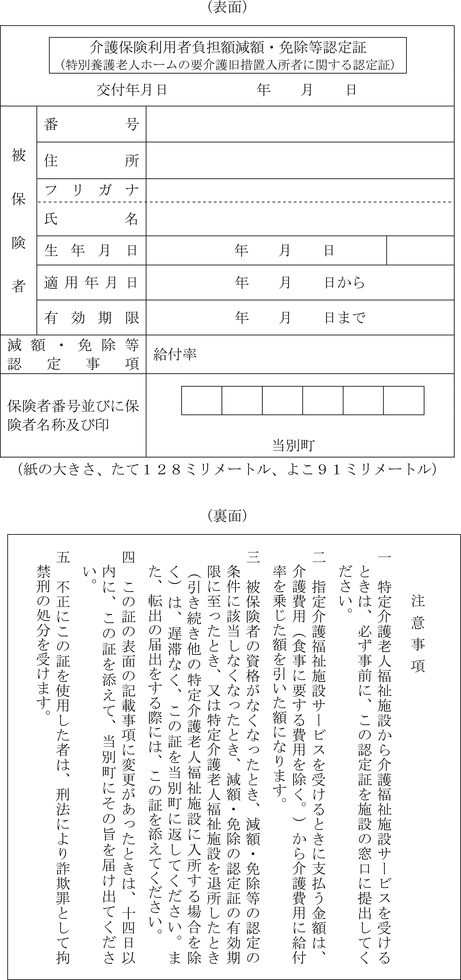 （表面）
介護保険利用者負担額減額・免除等認定証
（特別養護老人ホームの要介護旧措置入所者に関する認定証）
交付年月日　　　　　　年　　月　　日
被保険者
番号
住所
フリガナ
氏名
生年月日　　　　　　年　　月　　日
適用年月日　　　　　　年　　月　　日から
有効期限　　　　　　年　　月　　日まで
減額・免除等
認定事項
給付率
保険者番号並びに保
険者名称及び印
当別町
（紙の大きさ、たて１２８ミリメートル、よこ９１ミリメートル）
（裏面）
注意事項
一　特定介護老人福祉施設から介護福祉施設サービスを受ける
ときは、必ず事前に、この認定証を施設の窓口に提出してく
ださい。
二　指定介護福祉施設サービスを受けるときに支払う金額は、
介護費用（食事に要する費用を除く。）から介護費用に給付
率を乗じた額を引いた額になります。
三　被保険者の資格がなくなったとき、減額・免除等の認定の
条件に該当しなくなったとき、減額・免除の認定証の有効期
限に至ったとき、又は特定介護老人福祉施設を退所したとき
（引き続き他の特定介護老人福祉施設に入所する場合を除
く）は、遅滞なく、この証を当別町に返してください。ま
た、転出の届出をする際には、この証を添えてください。
四　この証の表面の記載事項に変更があったときは、十四日以
内に、この証を添えて、当別町にその旨を届け出てくださ
い。
五　不正にこの証を使用した者は、刑法により詐欺罪として拘
禁刑の処分を受けます。